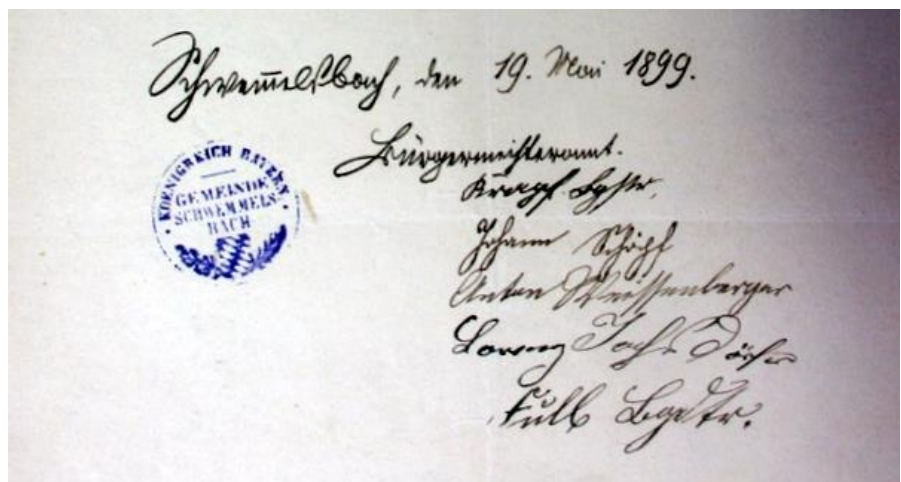 Schwemmelsbach, den 19. Mai 1899.
KOENIGREICH BAYERN
GEMEINDE
SCHWEMMELS-
BACH
Bürgermeisteramt.
Krapf. Bgstr.
Johann Schöpf
Anton Weissenberger
Lorenz
Füllb Bgdtr.